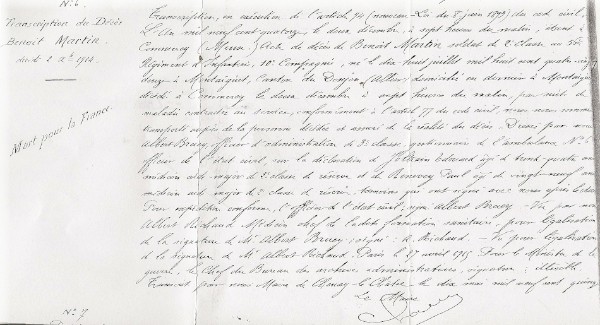 N° 6
Transcription du Décès
Benoit Martin
décédé 2 Xbre 1914
Mort pour la France
Transcription, en exécution de l'article 94 (nouveau Loi du 8 juin 1893) du code civil.
L'An mil neuf cent quatorze, le deux décembre, à sept heures du matin, étant à
Commercy (Meuse). Acte de décès de Benoît Martin soldat de 2e classe au 56e
Régiment d'Infanterie, 10e Compagnie, né le dix huit juillet mil huit cent quatre vingt
à Montaiguet, Canton du Donjon (Allier) domicilié en dernier à Montaiguet
décédé à Commercy le deux décembre à sept heures du matin, par suite de
maladie contractée au service, conformément à l'article 77 du code civil, nous nous sommes
transporté auprès de la personne décédée et assuré de la réalité du décès. Dressé par nous
Albert Brucy, officier d'administration de 2e classe, gestionnaire de l'ambulance N° 6
officier de l'état civil, sur la déclaration de Edouard âgé de trente quatre ans
médecin aide major de 2e classe de réserve et de Paul âgé de vingt-neuf ans
médecin aide major de 2e classe de réserve, témoins qui ont signé avec nous après lecture
Pour expédition conforme, l'officier de l'état civil, signé Albert Brucy - Vu par nous
Albert Richaud Médecin chef de la dite formation sanitaire, pour légalisation
de la signature de Mr Albert Brucy; signé: A. Richaud. - Vu pour légalisation
de la signature de Mr Albert Richaud, Paris le 27 avril 1915 Pour le Ministre de la
guerre, le Chef du Bureau des archives administratives, signature:
Transcrit par nous Maire de le dix mai mil neuf cent quinze
Le Maire
N° 7